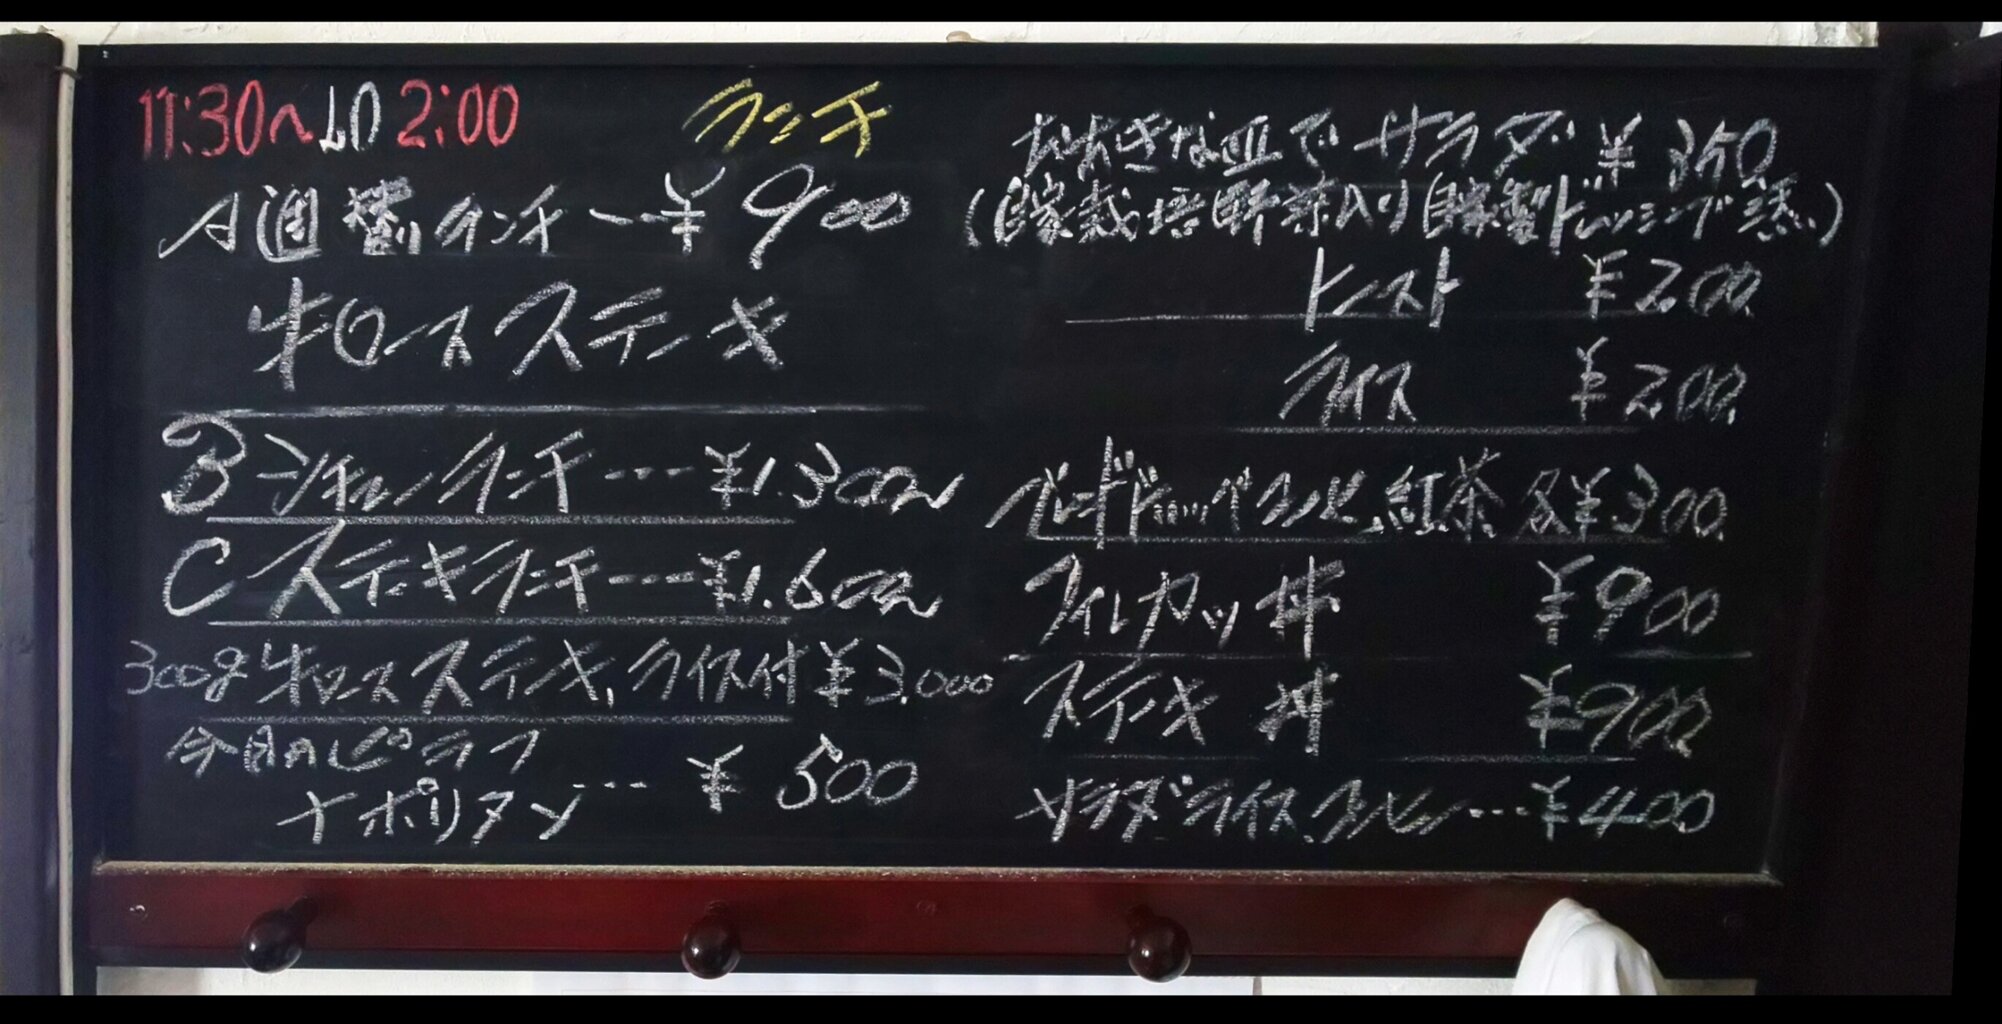 11:30〜LO 2:00
ランチ
A週替りランチー¥900
牛ロースステーキ
Bシチューランチ---¥1.300
Cステーキランチ---¥1.600
300g牛ロースステーキ,ライス付¥3.000
今日のピラフ
ナポリタン---¥500
大きな皿でサラダ ¥350
(自家栽培野菜入り自家製ドレッシングで
トースト ¥200
ライス ¥200
コーヒー、紅茶 各¥300
フィレカツ丼 ¥900
ステーキ丼 ¥900
サラダ、ライス、コーヒー---¥400